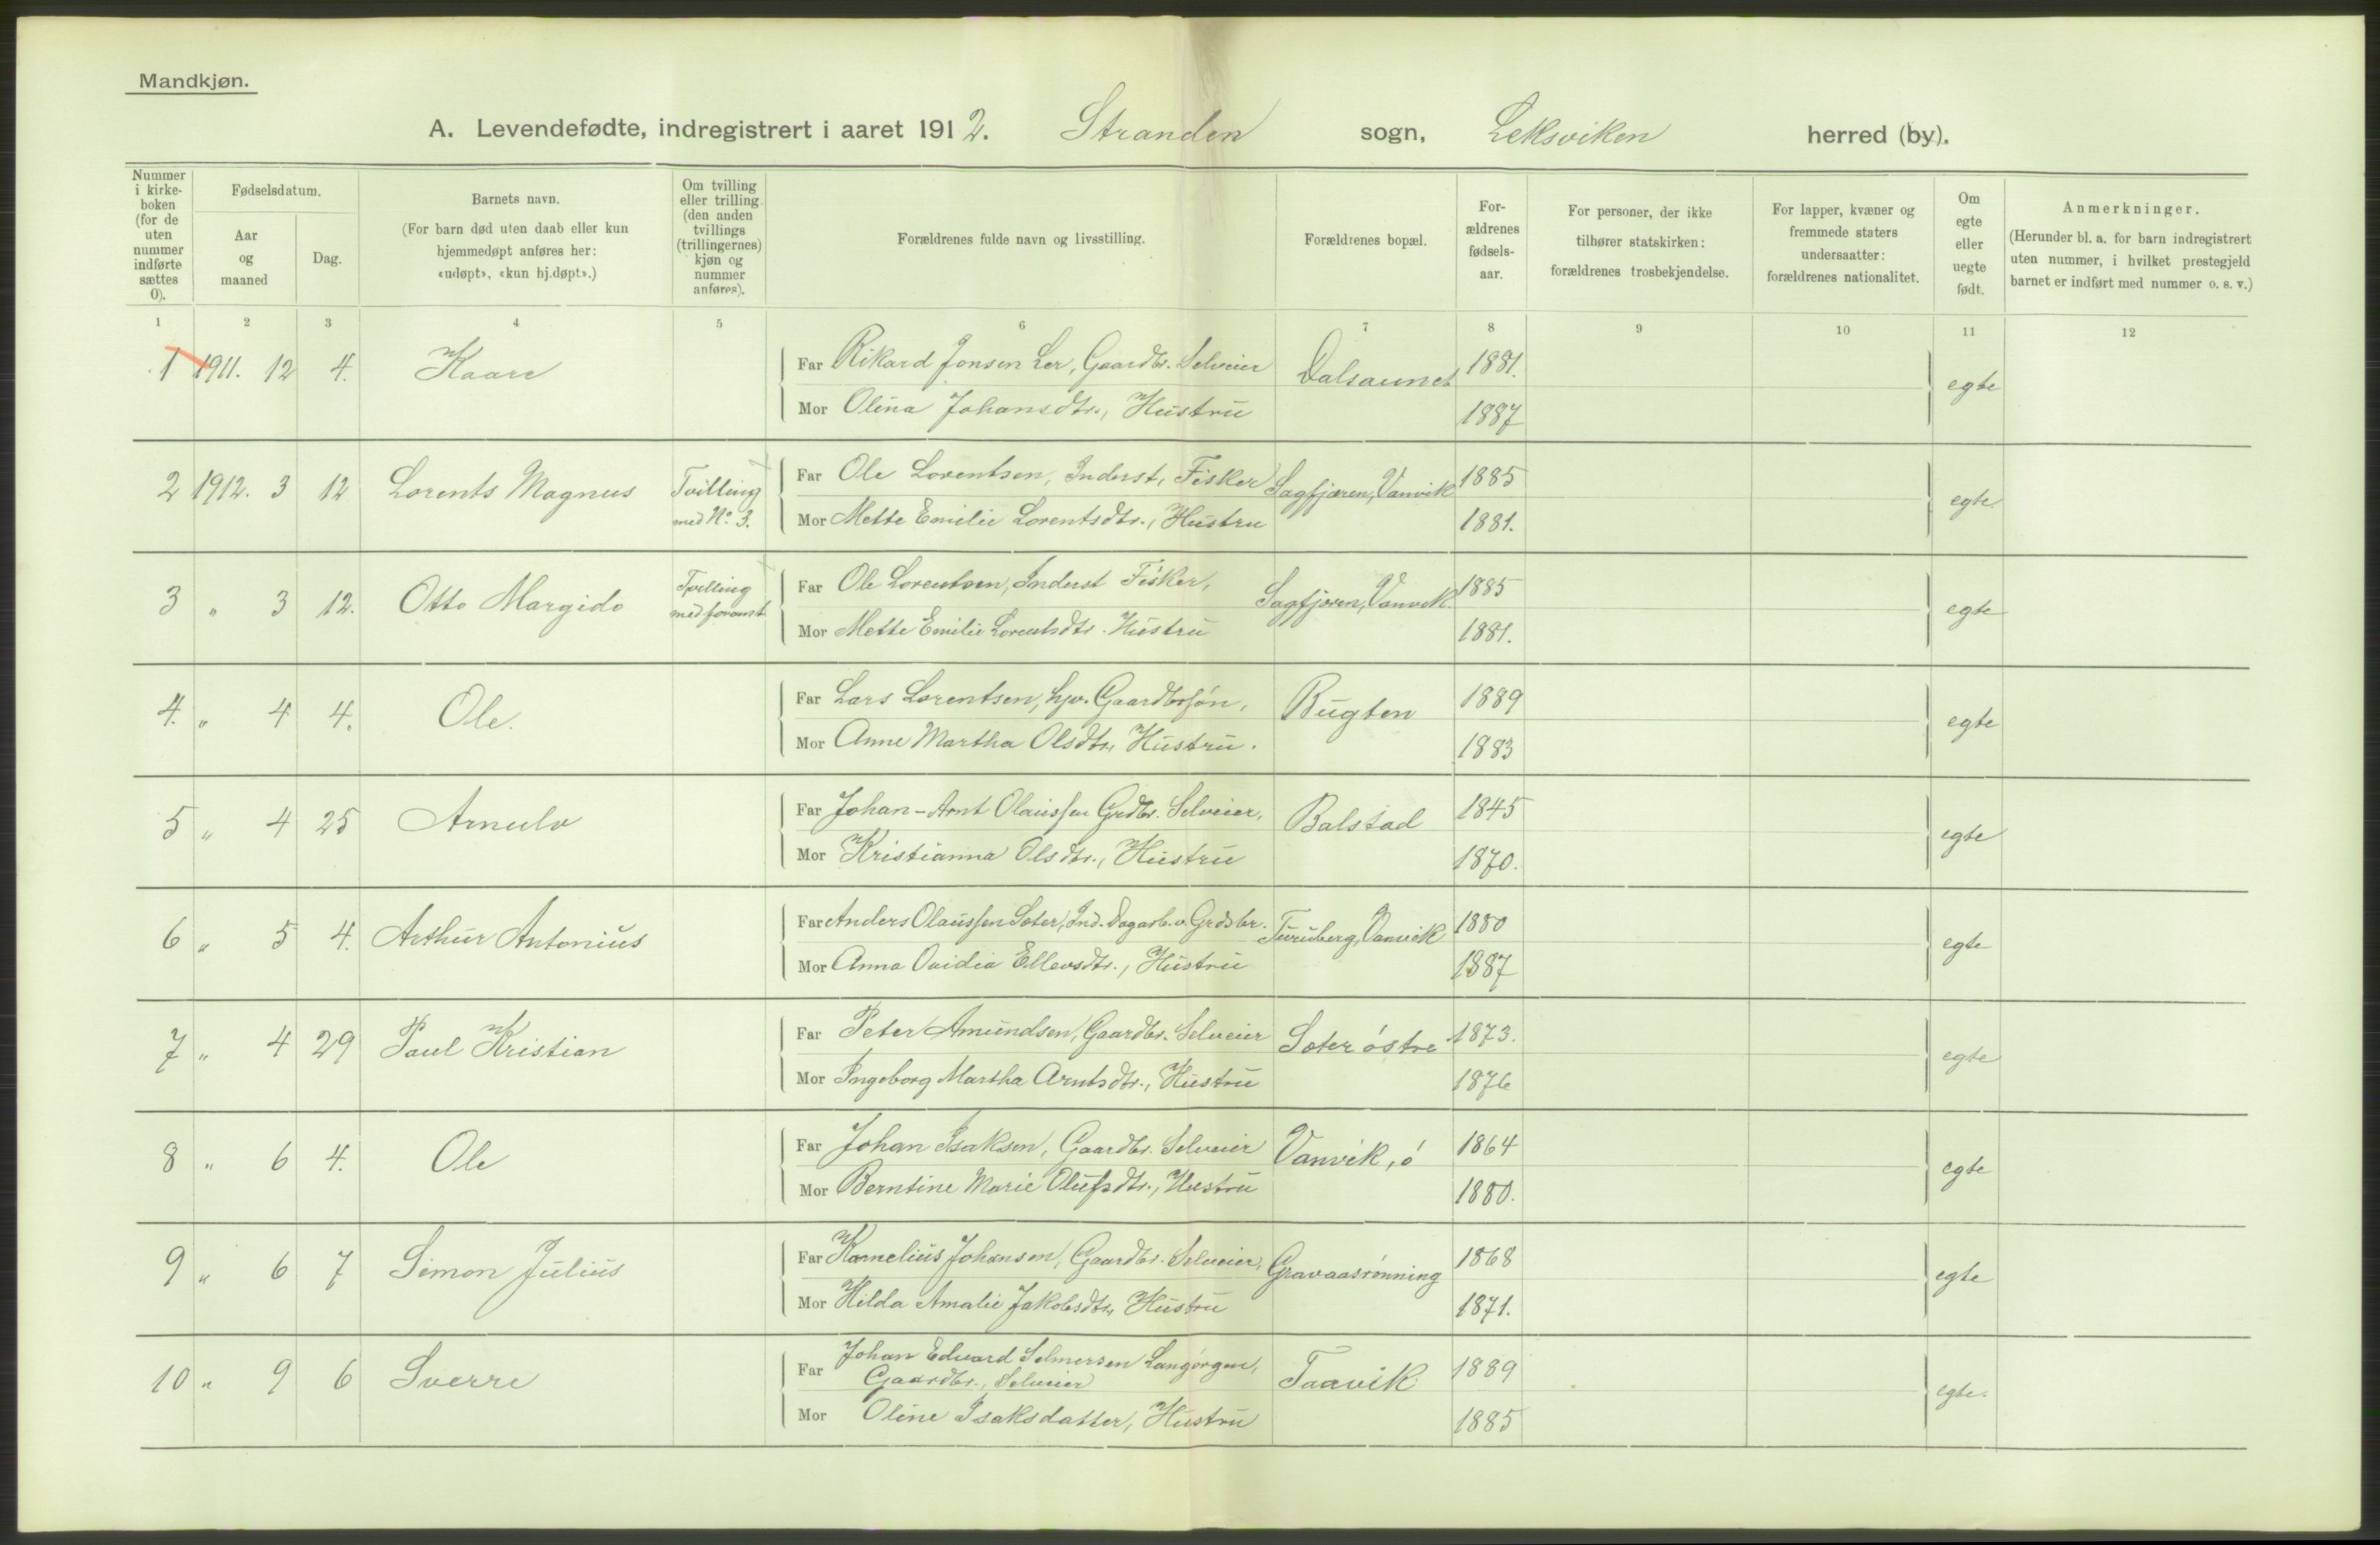 Mandkjøn.
A. Levendefødte, indregistrert i aaret 1912. Stranden sogn, Leksviken herred (by).
Nummer i kirke-boken (for de uten nummer indførte sættes 0).
Fødselsdatum.
Aar og maaned
Dag.
Barnets navn.
(For barn død uten daab eller kun hjemmedøpt anføres her: «udøpt», «kun hj.døpt».)
Om tvilling eller trilling (den anden tvillings (trillingernes) kjøn og nummer anføres).
Forældrenes fulde navn og livsstilling.
Forældrenes bopæl.
For-ældrenes fødsels-aar.
For personer, der ikke tilhører statskirken: forældrenes trosbekjendelse.
For lapper, kvæner og fremmede staters undersaatter: forældrenes nationalitet.
Om egte eller uegte født.
Anmerkninger.
(Herunder bl. a. for barn indregistrert uten nummer, i hvilket prestegjeld barnet er indført med nummer o. s. v.)
1 2 3 4 5 6 7 8 9 10 11 12
1 1911. 12 4. Kaare Far Rikard Jonsen Ler, Gaardbr. Selveier Dalsaunet 1881. egte
Mor Olina Johansdtr., Hustru 1887
2 1912. 3 12 Lorents Magnus Tvilling med No. 3. Far Ole Lorentsen, Inderst, Fisker Sagfjæren, Vanvik 1885 egte
Mor Mette Emilie Lorentsdtr., Hustru 1881.
3 " 3 12. Otto Margido Tvilling med foranst Far Ole Lorentsen, Inderst Fisker, Sagfjæren, Vanvik. 1885 egte
Mor Mette Emilie Lorentsdtr. Hustru 1881.
4. " 4 4. Ole. Far Lars Lorentsen, hjv. Gaardbrsøn, Bugten 1889 egte
Mor Anne Martha Olsdtr, Hustru. 1883
5 " 4 25 Arnulv Far Johan-Arnt Olaussen Grdbr. Selveier, Balstad 1845 egte
Mor Kristianna Olsdtr., Hustru 1870.
6 " 5 4. Arthur Antonius Far Anders Olaussen Seter, Ind. Dagarb. o. Grdsbr. Turuberg, Vanvik 1880 egte
Mor Anna Ovidia Ellevsdtr., Hustru 1887
7 " 4 29 Paul Kristian Far Peter Amundsen, Gaardbr. Selveier Seter østre 1873. egte
Mor Ingeborg Martha Arntsdtr., Hustru 1876
8 " 6 4. Ole Far Johan Isaksen, Gaardbr. Selveier Vanvik, ø 1864 egte
Mor Berntine Marie Olufsdtr., Hustru 1880.
9 " 6 7 Simon Julius Far Kornelius Johansen, Gaardbr. Selveier, Gravaasrønning 1868 egte
Mor Hilda Amalie Jakobsdtr, Hustru 1871.
10 " 9 6 Sverre Far Johan Edvard Selmersen Langørgen, Gaardbr., Selveier Taavik 1889 egte.
Mor Oline Isaksdatter, Hustru 1885